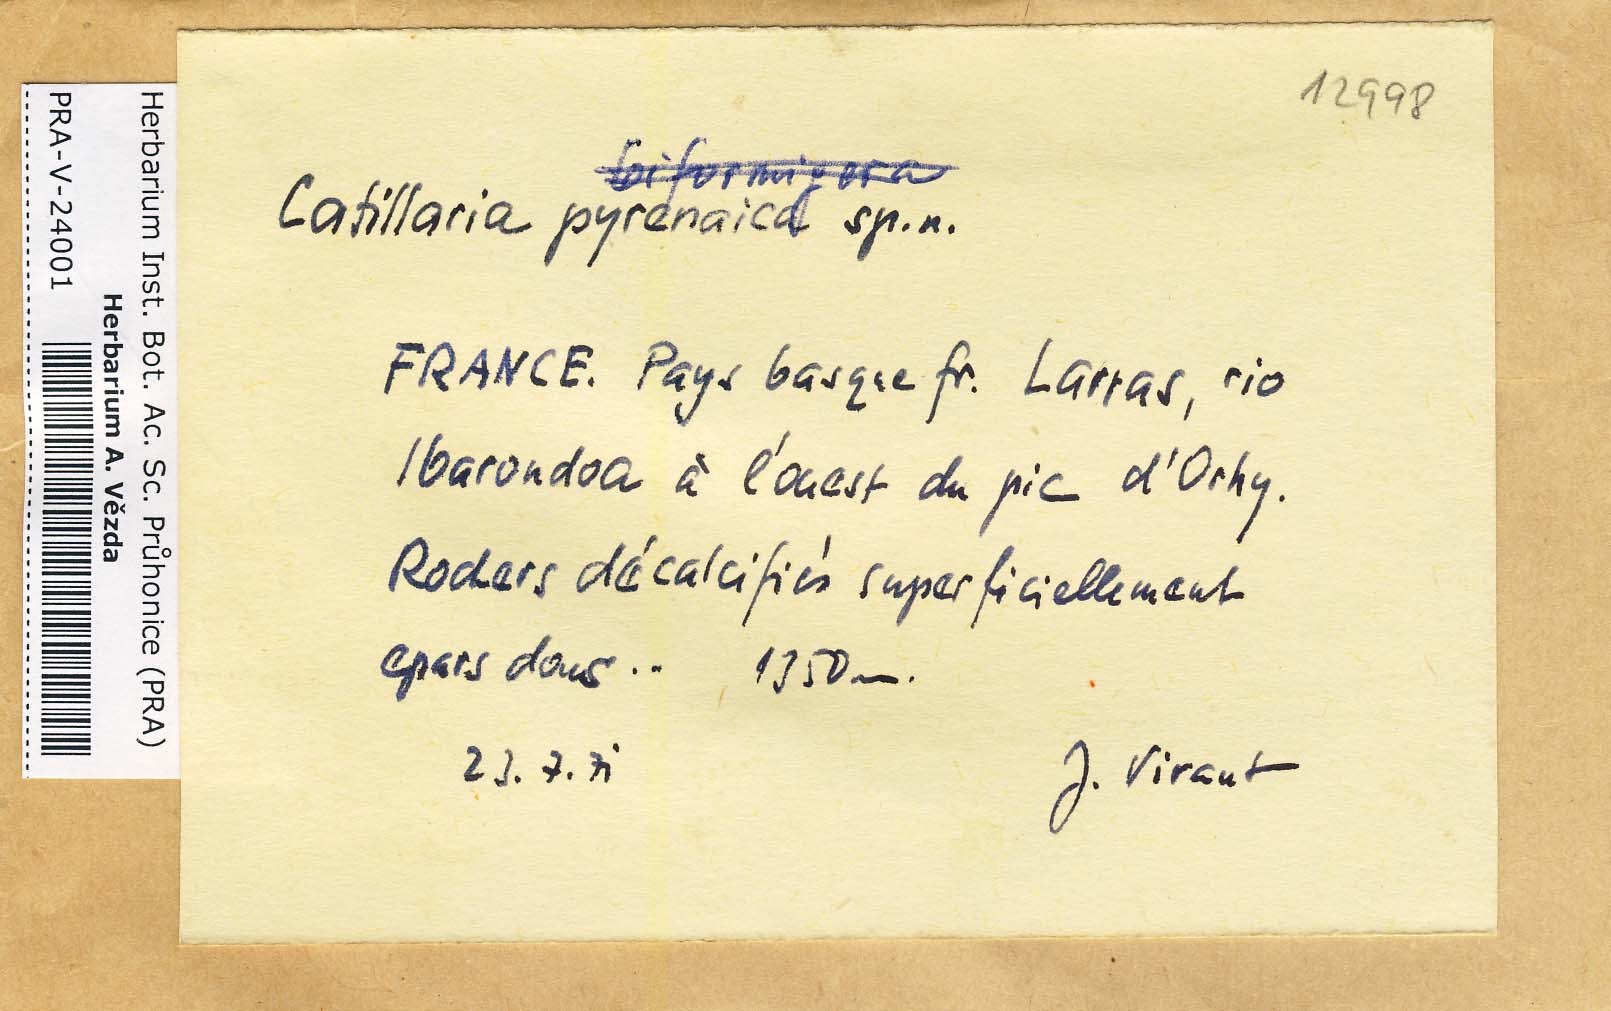 12998
biformigera
Catillaria pyrenaica sp.n.
FRANCE. Pays basque fr. Larras, rio
Ibarondoa à l'ouest du pic d'Orhy.
Rochers décalcifiés superficiellement
epars dans.. 1350m.
23.7.71
J. Vivant
Herbarium Inst. Bot. Ac. Sc. Průhonice (PRA)
Herbarium A. Vězda
PRA-V-24001